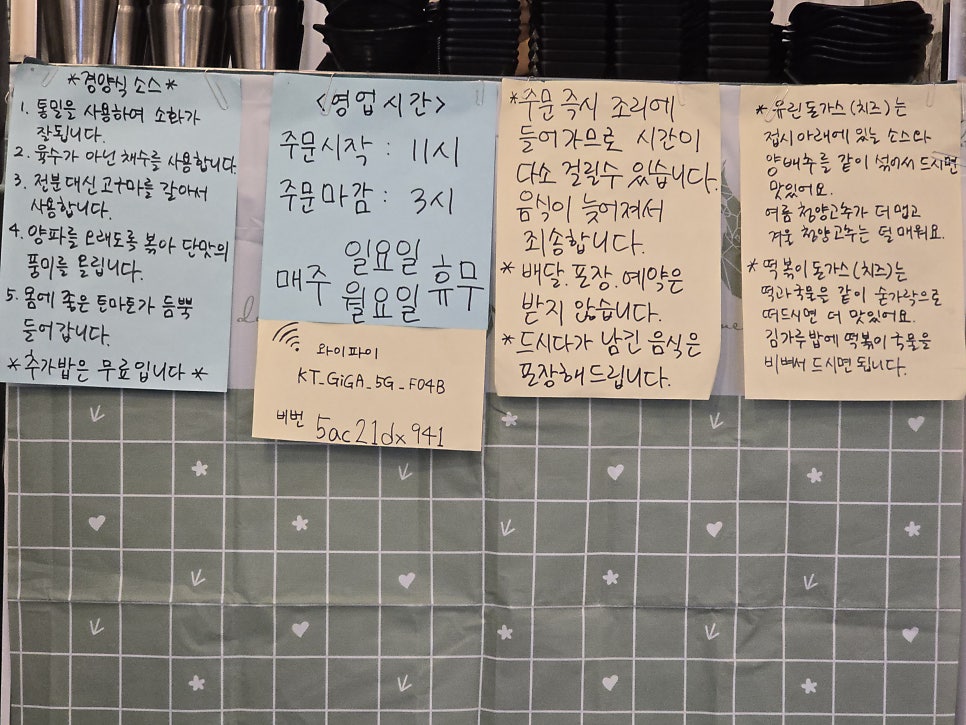 *경양식 소스*
1. 통일을 사용하여 소화가
잘됩니다.
2. 육수가 아닌 채수를 사용합니다.
3. 전분대신 고구마를 갈아서
사용합니다.
4. 양파를 오래도록 볶아 단맛의
풍미를 올립니다.
5. 몸에 좋은 토마토가 듬뿍
들어갑니다.
*추가밥은 무료입니다*
<영업시간>
주문시작 : 11시
주문마감 : 3시
매주 일요일 월요일 휴무
와이파이
KT_GiGA_5G_F04B
비번 5ac21dx941
*주문 즉시 조리에
들어가므로 시간이
다소 걸릴수 있습니다.
음식이 늦어져서
죄송합니다.
* 배달.포장.예약은
받지 않습니다.
* 드시다가 남긴 음식은
포장해드립니다.
* 유린돈가스(치즈)는
접시아래에 있는 소스와
양배추를 같이 섞어서 드시면
맛있어요.
여름 청양고추가 더 맵고
겨울 청양고추는 덜 매워요.
* 떡볶이돈가스(치즈)는
떡과국물은 같이 숟가락으로
떠드시면 더 맛있어요.
김가루밥에 떡볶이 국물을
비벼서 드시면 됩니다.